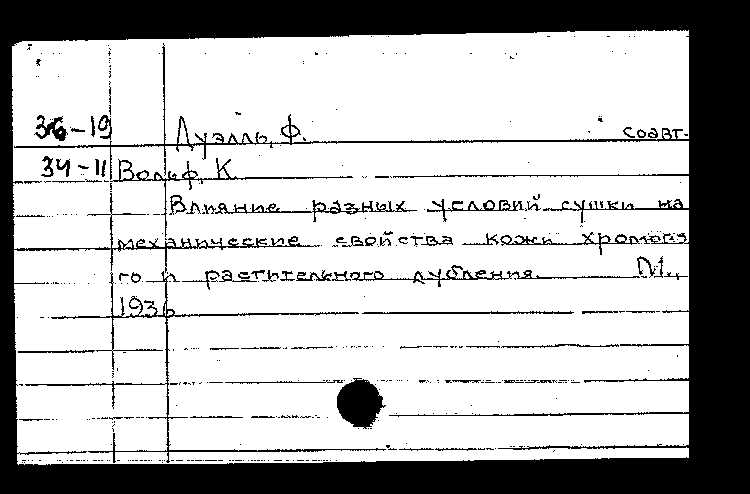 36-19 Луэлль, Ф. соавт.
34-11 Вольф, К
Влияние разных условий сушки на
механические свойства кожи хромово
го и растительного дубления. М.,
1936